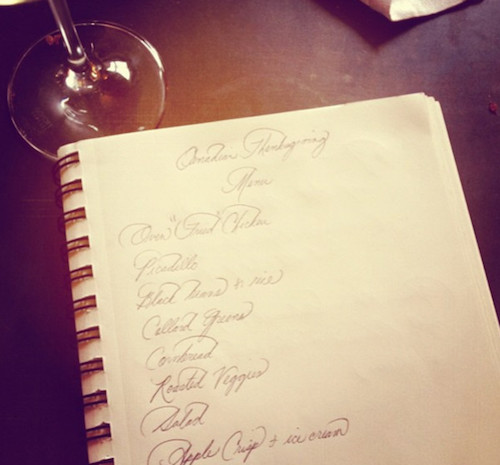 Canadian Thanksgiving
Menu
Oven "Fried" Chicken
Picadillo
Black beans + rice
Collard Greens
Cornbread
Roasted Veggies
Salad
Apple Crisp + ice cream